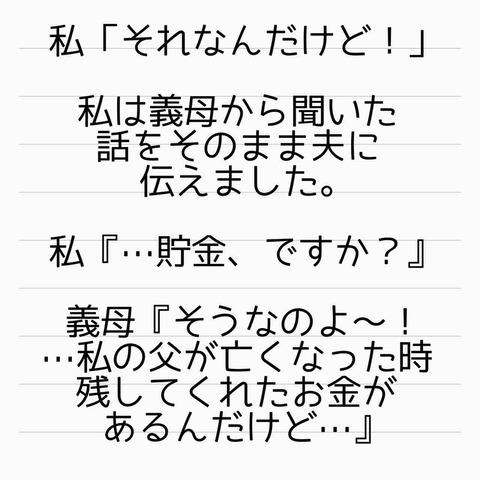 私「それなんだけど！」
私は義母から聞いた
話をそのまま夫に
伝えました。
私『…貯金、ですか？』
義母『そうなのよ〜！
…私の父が亡くなった時
残してくれたお金が
あるんだけど…』